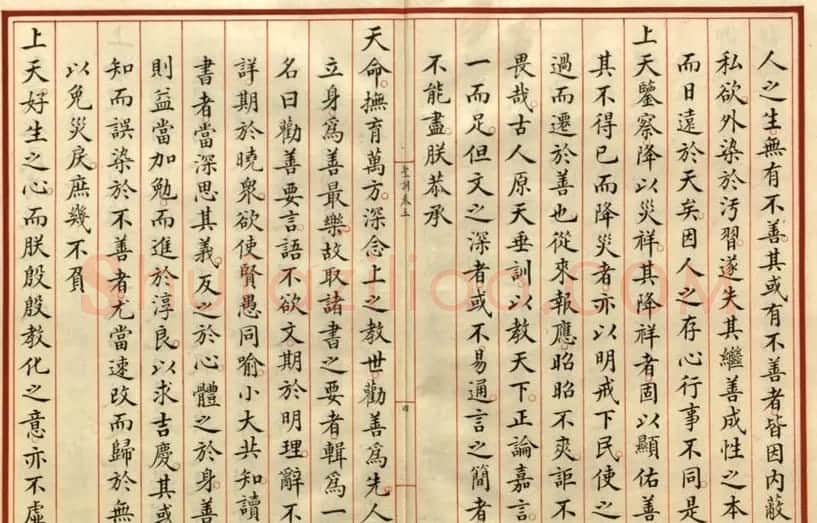 人之生無有不善其或有不善者皆因内蔽
私欲外染於汚習遂失其繼善成性之本
而日遠於天矣因人之存心行事不同是
上天鑒察降以災祥其降祥者固以顯佑善
其不得已而降災者亦以明戒下民使之
過而遷於善也從來報應昭昭不爽詎不
畏哉古人原天垂訓以教天下正論嘉言
一而足但文之深者或不易通言之簡者
不能盡朕恭承
聖訓卷五
四
天命撫育萬方深念上之教世勸善爲先人
立身爲善最樂故取諸書之要者輯爲一
名曰勸善要言語不欲文期於明理辭不
詳期於曉衆欲使賢愚同喻小大共知讀
書者當深思其義反之於心體之於身善
則益當加勉而進於淳良以求吉慶其或
知而誤染於不善者尤當速改而歸於無
以免災戾庶幾不負
上天好生之心而朕殷殷教化之意亦不虛
Shuraziliao.COM